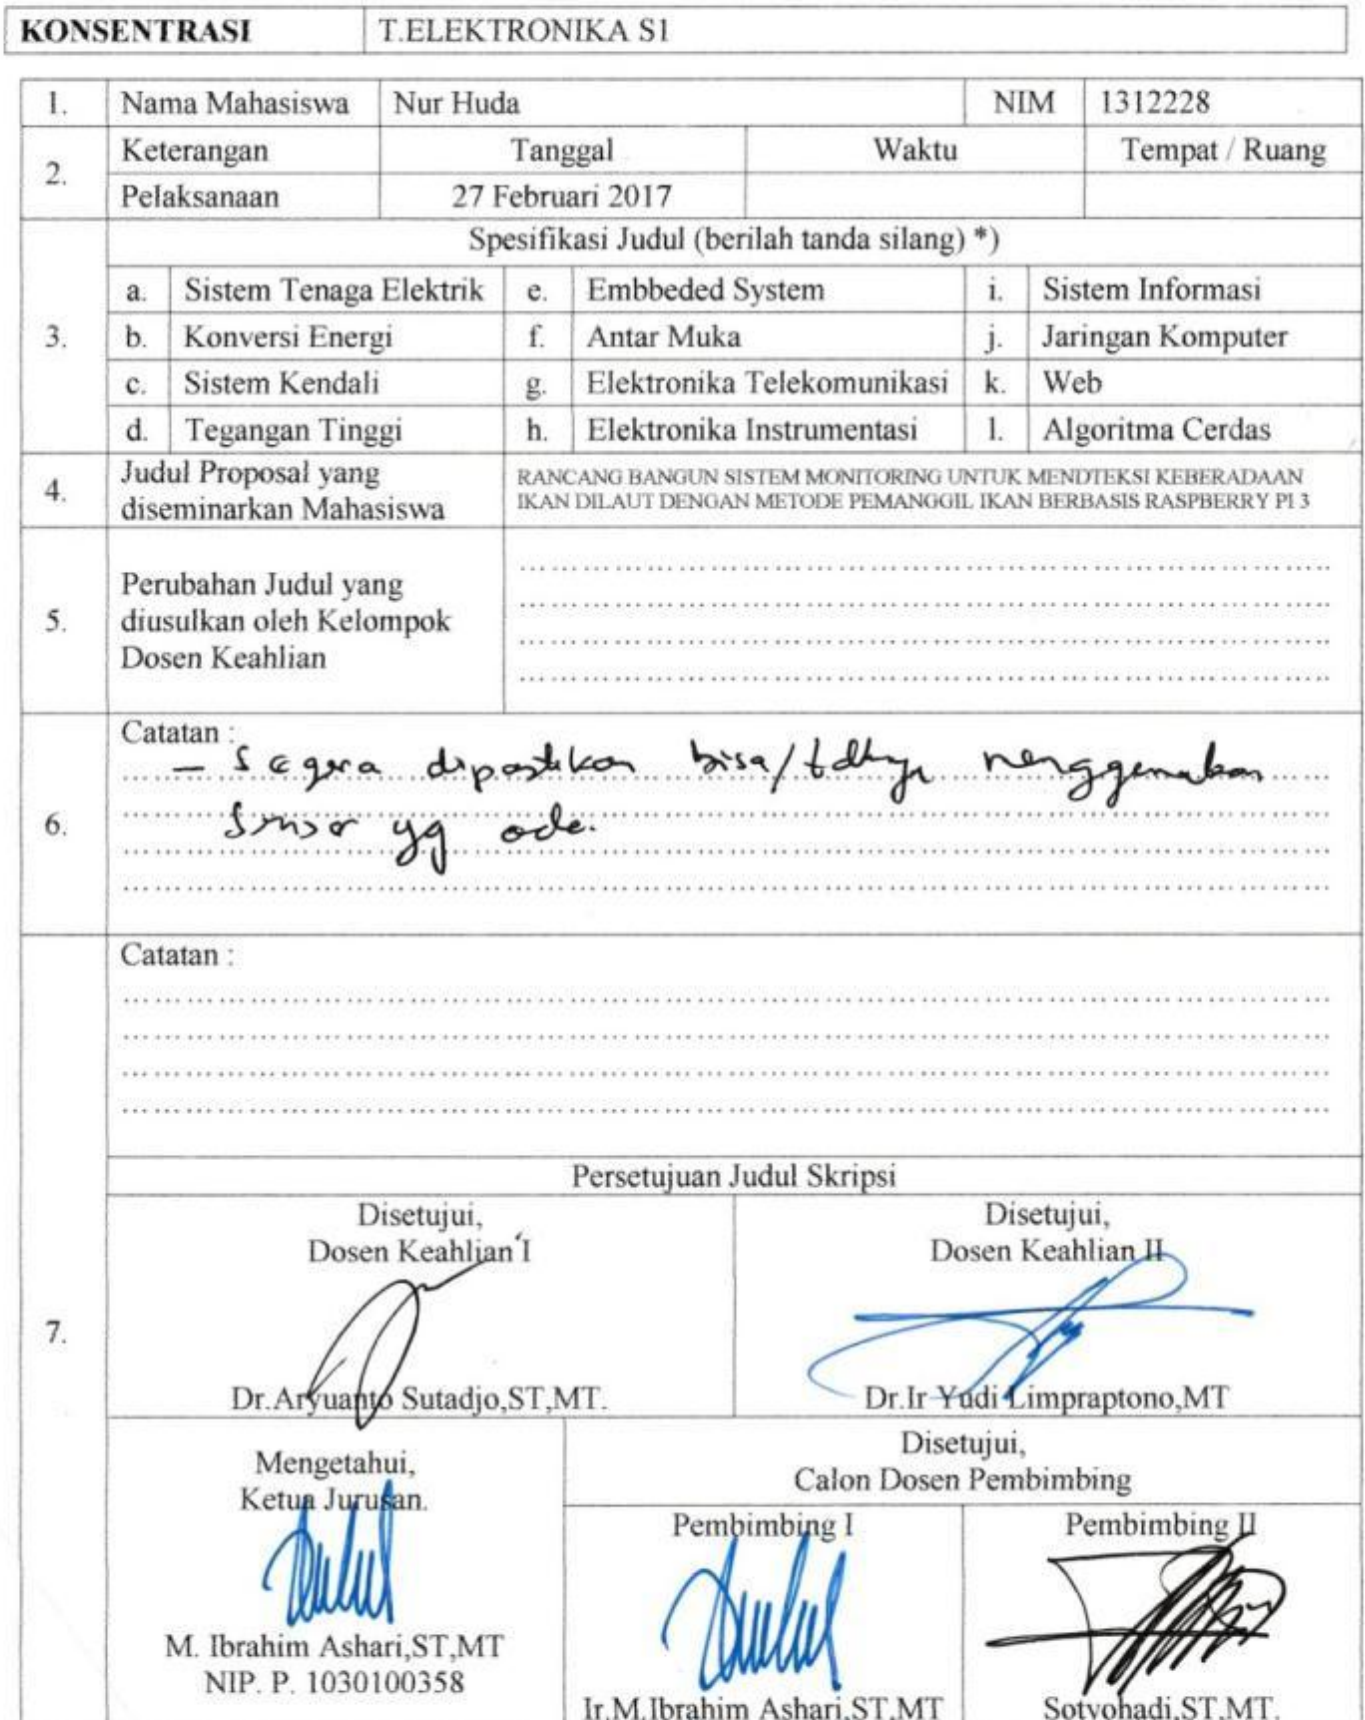 KONSENTRASI T.ELEKTRONIKA S1
1. Nama Mahasiswa Nur Huda NIM 1312228
2. Keterangan Tanggal Waktu Tempat / Ruang
Pelaksanaan 27 Februari 2017
3. Spesifikasi Judul (berilah tanda silang) *)
a. Sistem Tenaga Elektrik e. Embbeded System i. Sistem Informasi
b. Konversi Energi f. Antar Muka j. Jaringan Komputer
c. Sistem Kendali g. Elektronika Telekomunikasi k. Web
d. Tegangan Tinggi h. Elektronika Instrumentasi l. Algoritma Cerdas
4. Judul Proposal yang
diseminarkan Mahasiswa
RANCANG BANGUN SISTEM MONITORING UNTUK MENDTEKSI KEBERADAAN
IKAN DILAUT DENGAN METODE PEMANGGIL IKAN BERBASIS RASPBERRY PI 3
5. Perubahan Judul yang
diusulkan oleh Kelompok
Dosen Keahlian
6. Catatan :
- Segera dipastikan bisa/ menggunakan
sensor yg ada.
7. Catatan :
Persetujuan Judul Skripsi
Disetujui,
Dosen Keahlian I
Dr.Aryuanto Sutadjo,ST,MT.
Disetujui,
Dosen Keahlian II
Dr.Ir Yudi Limpraptono,MT
Mengetahui,
Ketua Jurusan.
M. Ibrahim Ashari,ST,MT
NIP. P. 1030100358
Disetujui,
Calon Dosen Pembimbing
Pembimbing I
Ir.M.Ibrahim Ashari,ST,MT
Pembimbing II
Sotyohadi,ST,MT.